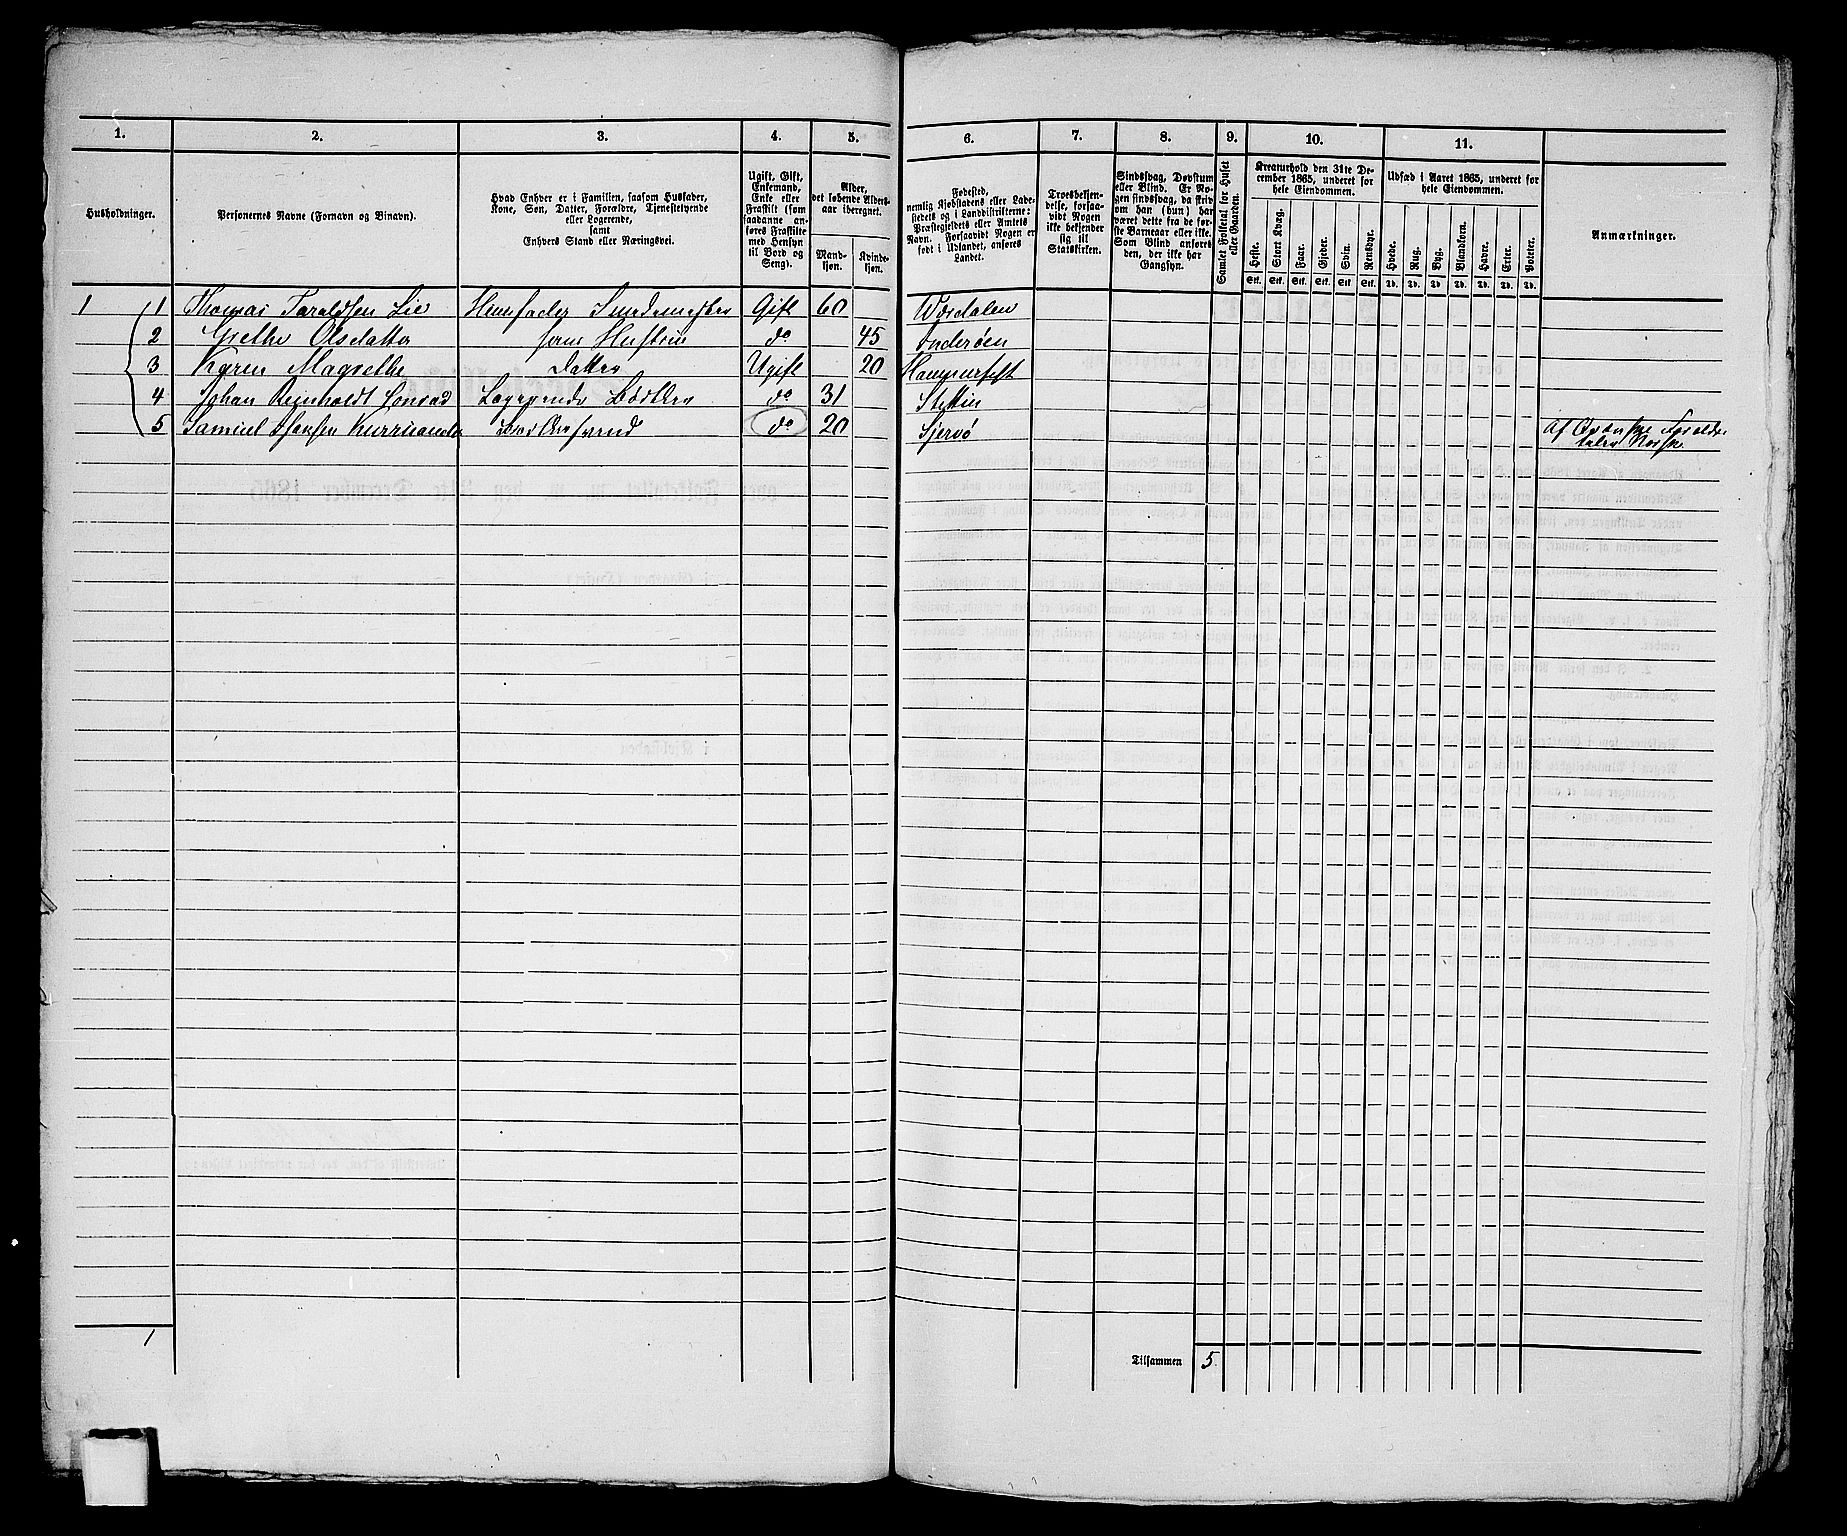 1. 2. 3. 4. 5. 6. 7. 8. 9. 10. 11.
Husholdninger.
Personernes Navne (Fornavn og Binavn).
Hvad Enhver er i Familien, saasom Husfader,
Kone, Søn, Datter, Forældre, Tjenestetyende
eller Logerende,
samt
Enhvers Stand eller Næringsvei.
Ugift, Gift,
Enkemand,
Enke eller
Fraskilt (som
saadanne an-
føres Fraskilte
med Hensyn
til Bord og
Seng).
Alder,
det løbende Alders-
aar iberegnet.
Mand-
kjøn.
Kvinde-
kjøn.
Fødested,
nemlig Kjøbstadens eller Lade-
stedets og i Landdistrikterne:
Præstegjeldets eller Amtets
Navn. Forsaavidt Nogen er
født i Udlandet, anføres
Landet.
Troesbekjen-
delse, forsaa-
vidt Nogen
ikke bekjender
sig til
Statskirken.
Sindssvag, Døvstum
eller Blind. Er No-
gen sindssvag, da skriv
om han (hun) har
været dette fra de før-
ste Barneaar eller ikke.
Som Blind anføres
den, der ikke har
Gangsyn.
Samlet Folketal for Huset
eller Gaarden.
Kreaturhold den 31te De-
cember 1865, underet for
hele Eiendommen.
Heste. Stort Kvæg. Faar. Gjeder. Svin. Rensdyr.
Stk. Stk. Stk. Stk. Stk. Stk.
Udsæd i Aaret 1865, underet for
hele Eiendommen.
Hvede. Rug. Byg. Blandkorn. Havre. Erter. Poteter.
Td. Td. Td. Td. Td. Td. Td.
Anmærkninger.
1 1 Thomas Taraldsen Lie Huusfader Gift 60 Værdalen
2 Grethe Olsdatter hans Hustrue do 45 Inderøen
3 Karen Magrethe Datter Ugift 20 Hammerfest
4 Johan Reinholdt Conrad Logerende Bødker do 31 Stettin
5 Samuel Hansen do 20 Skjervø Af Qvænske Forældre
taler Norsk
1
Tilsammen 5.